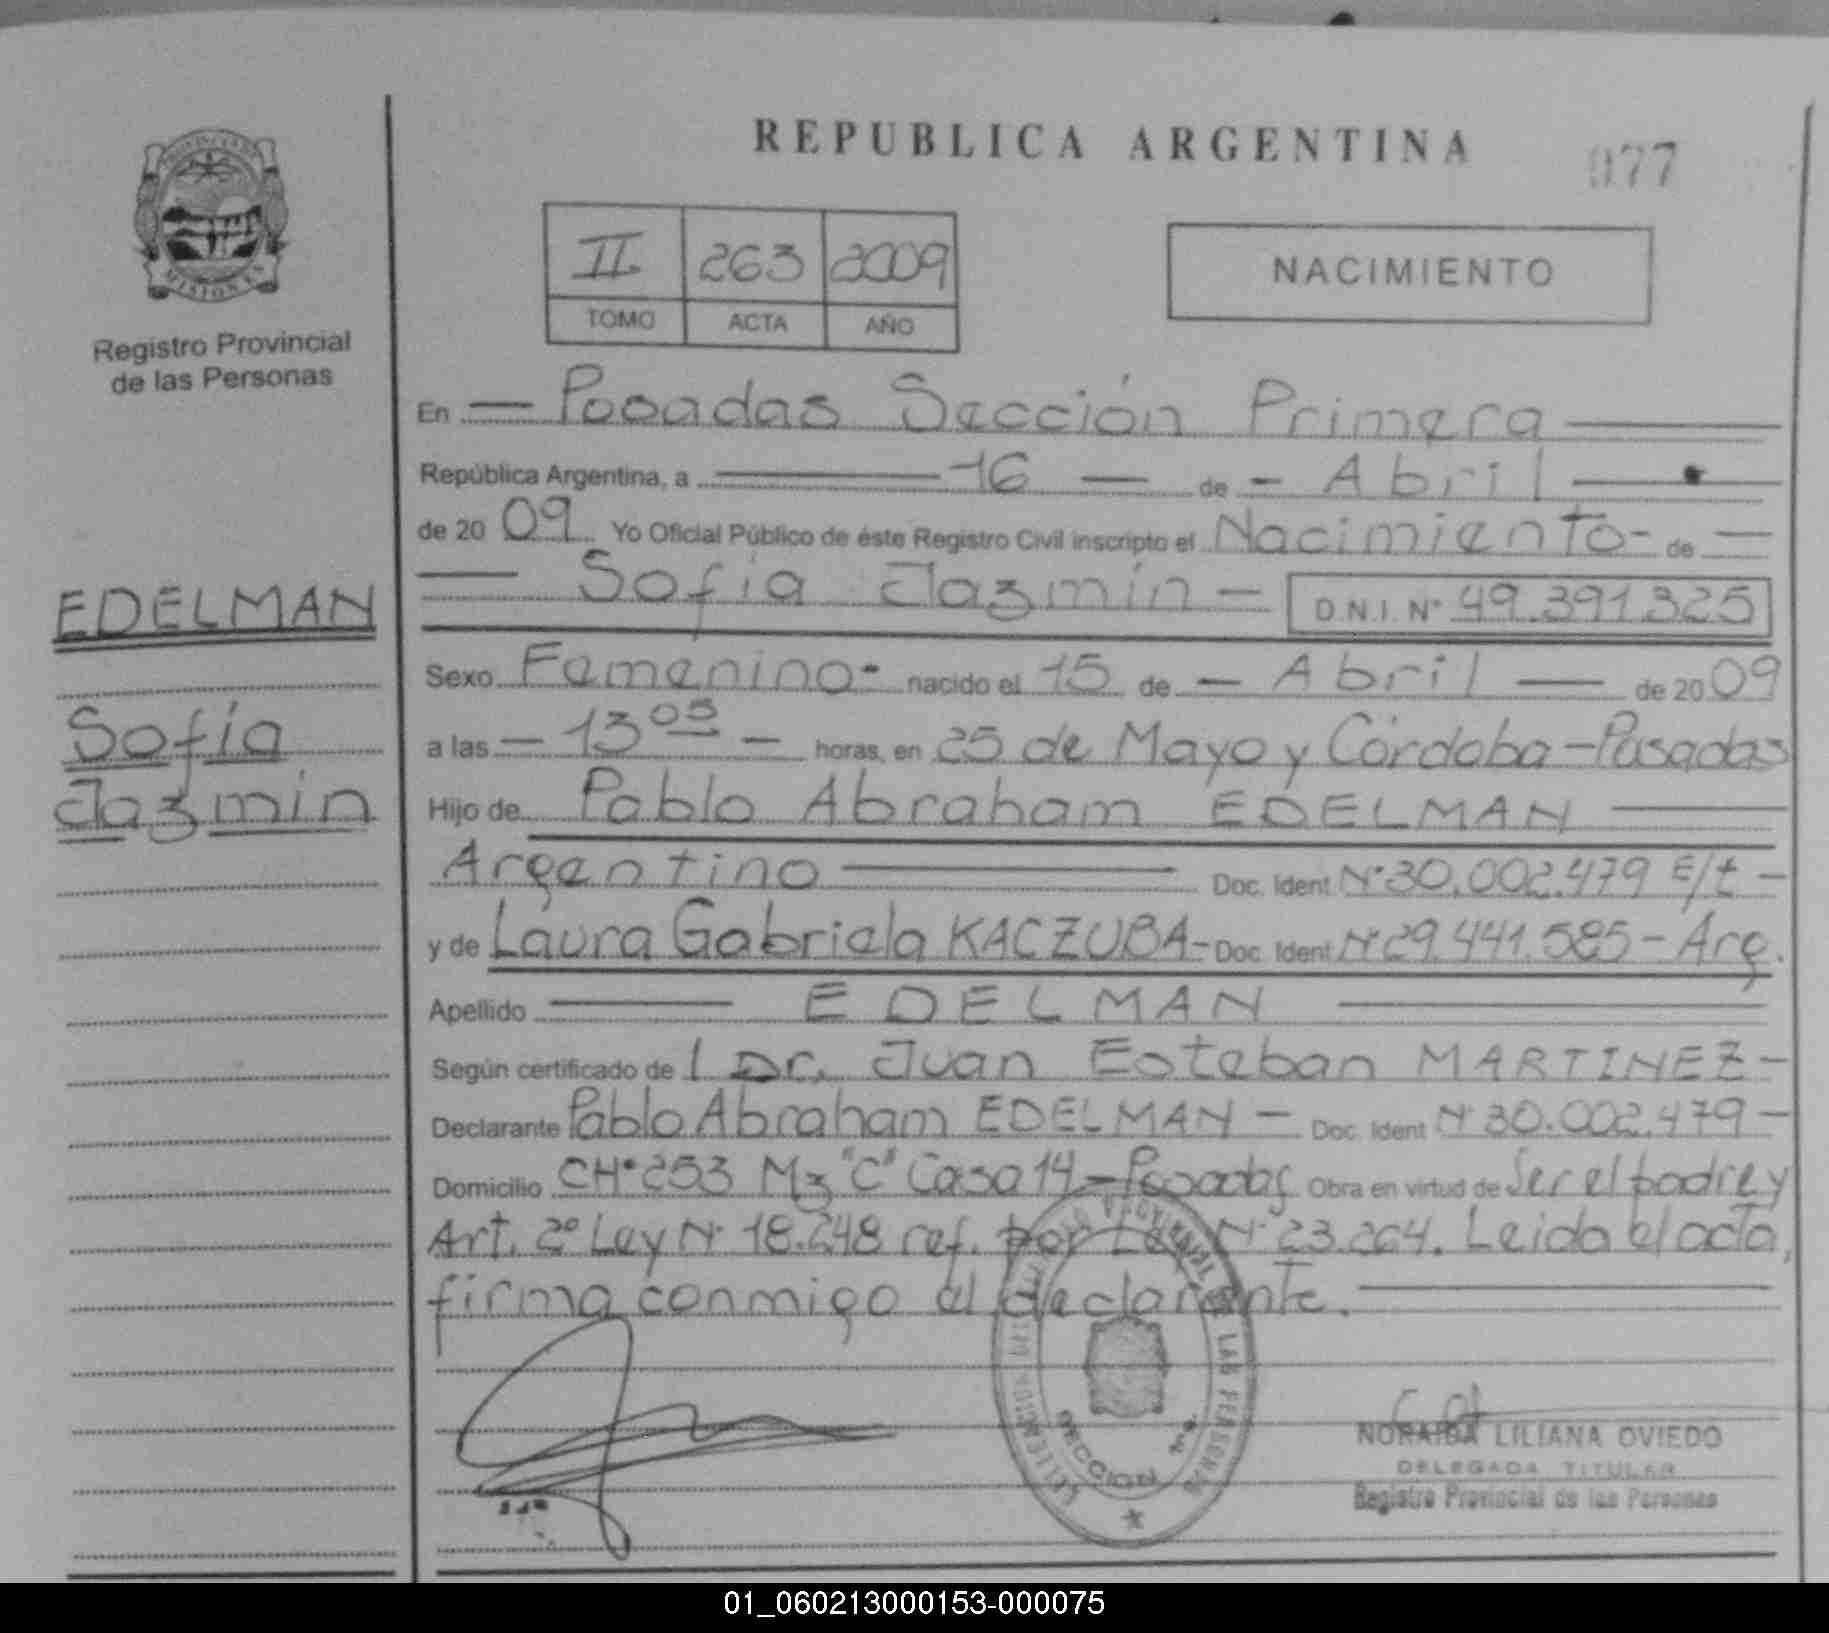 REPUBLICA ARGENTINA
077
PROVINCIA DE
MISIONES
Registro Provincial
de las Personas
II 263 2009
TOMO ACTA AÑO
NACIMIENTO
EDELMAN
Sofía
Jazmín
En Posadas Sección Primera
República Argentina, a 16 de Abril
de 2009 Yo Oficial Público de éste Registro Civil inscripto el Nacimiento de
Sofía Jazmín D.N.I. Nº 49.391.325
Sexo Femenino nacido el 15 de Abril de 2009
a las 13 05 horas, en 25 de Mayo y Córdoba - Posadas
Hijo de Pablo Abraham EDELMAN
Argentino Doc. Ident Nº 30.002.479 E/t
y de Laura Gabriela KACZUBA - Doc. Ident Nº 29.441.585 - Arg.
Apellido EDELMAN
Según certificado de l Dr. Juan Esteban MARTINEZ
Declarante Pablo Abraham EDELMAN Doc. Ident Nº 30.002.479
Domicilio CHº 253 Mz "C" Casa 14 - Posadas Obra en virtud de Ser el padre y
Art. 2º Ley Nº 18.248 ref. por Ley Nº 23.264. Leida el acta,
firma conmigo el declarante.
SECCION 1ra.
NORAIDA LILIANA OVIEDO
DELEGADA TITULAR
Registro Provincial de las Personas
01_060213000153-000075